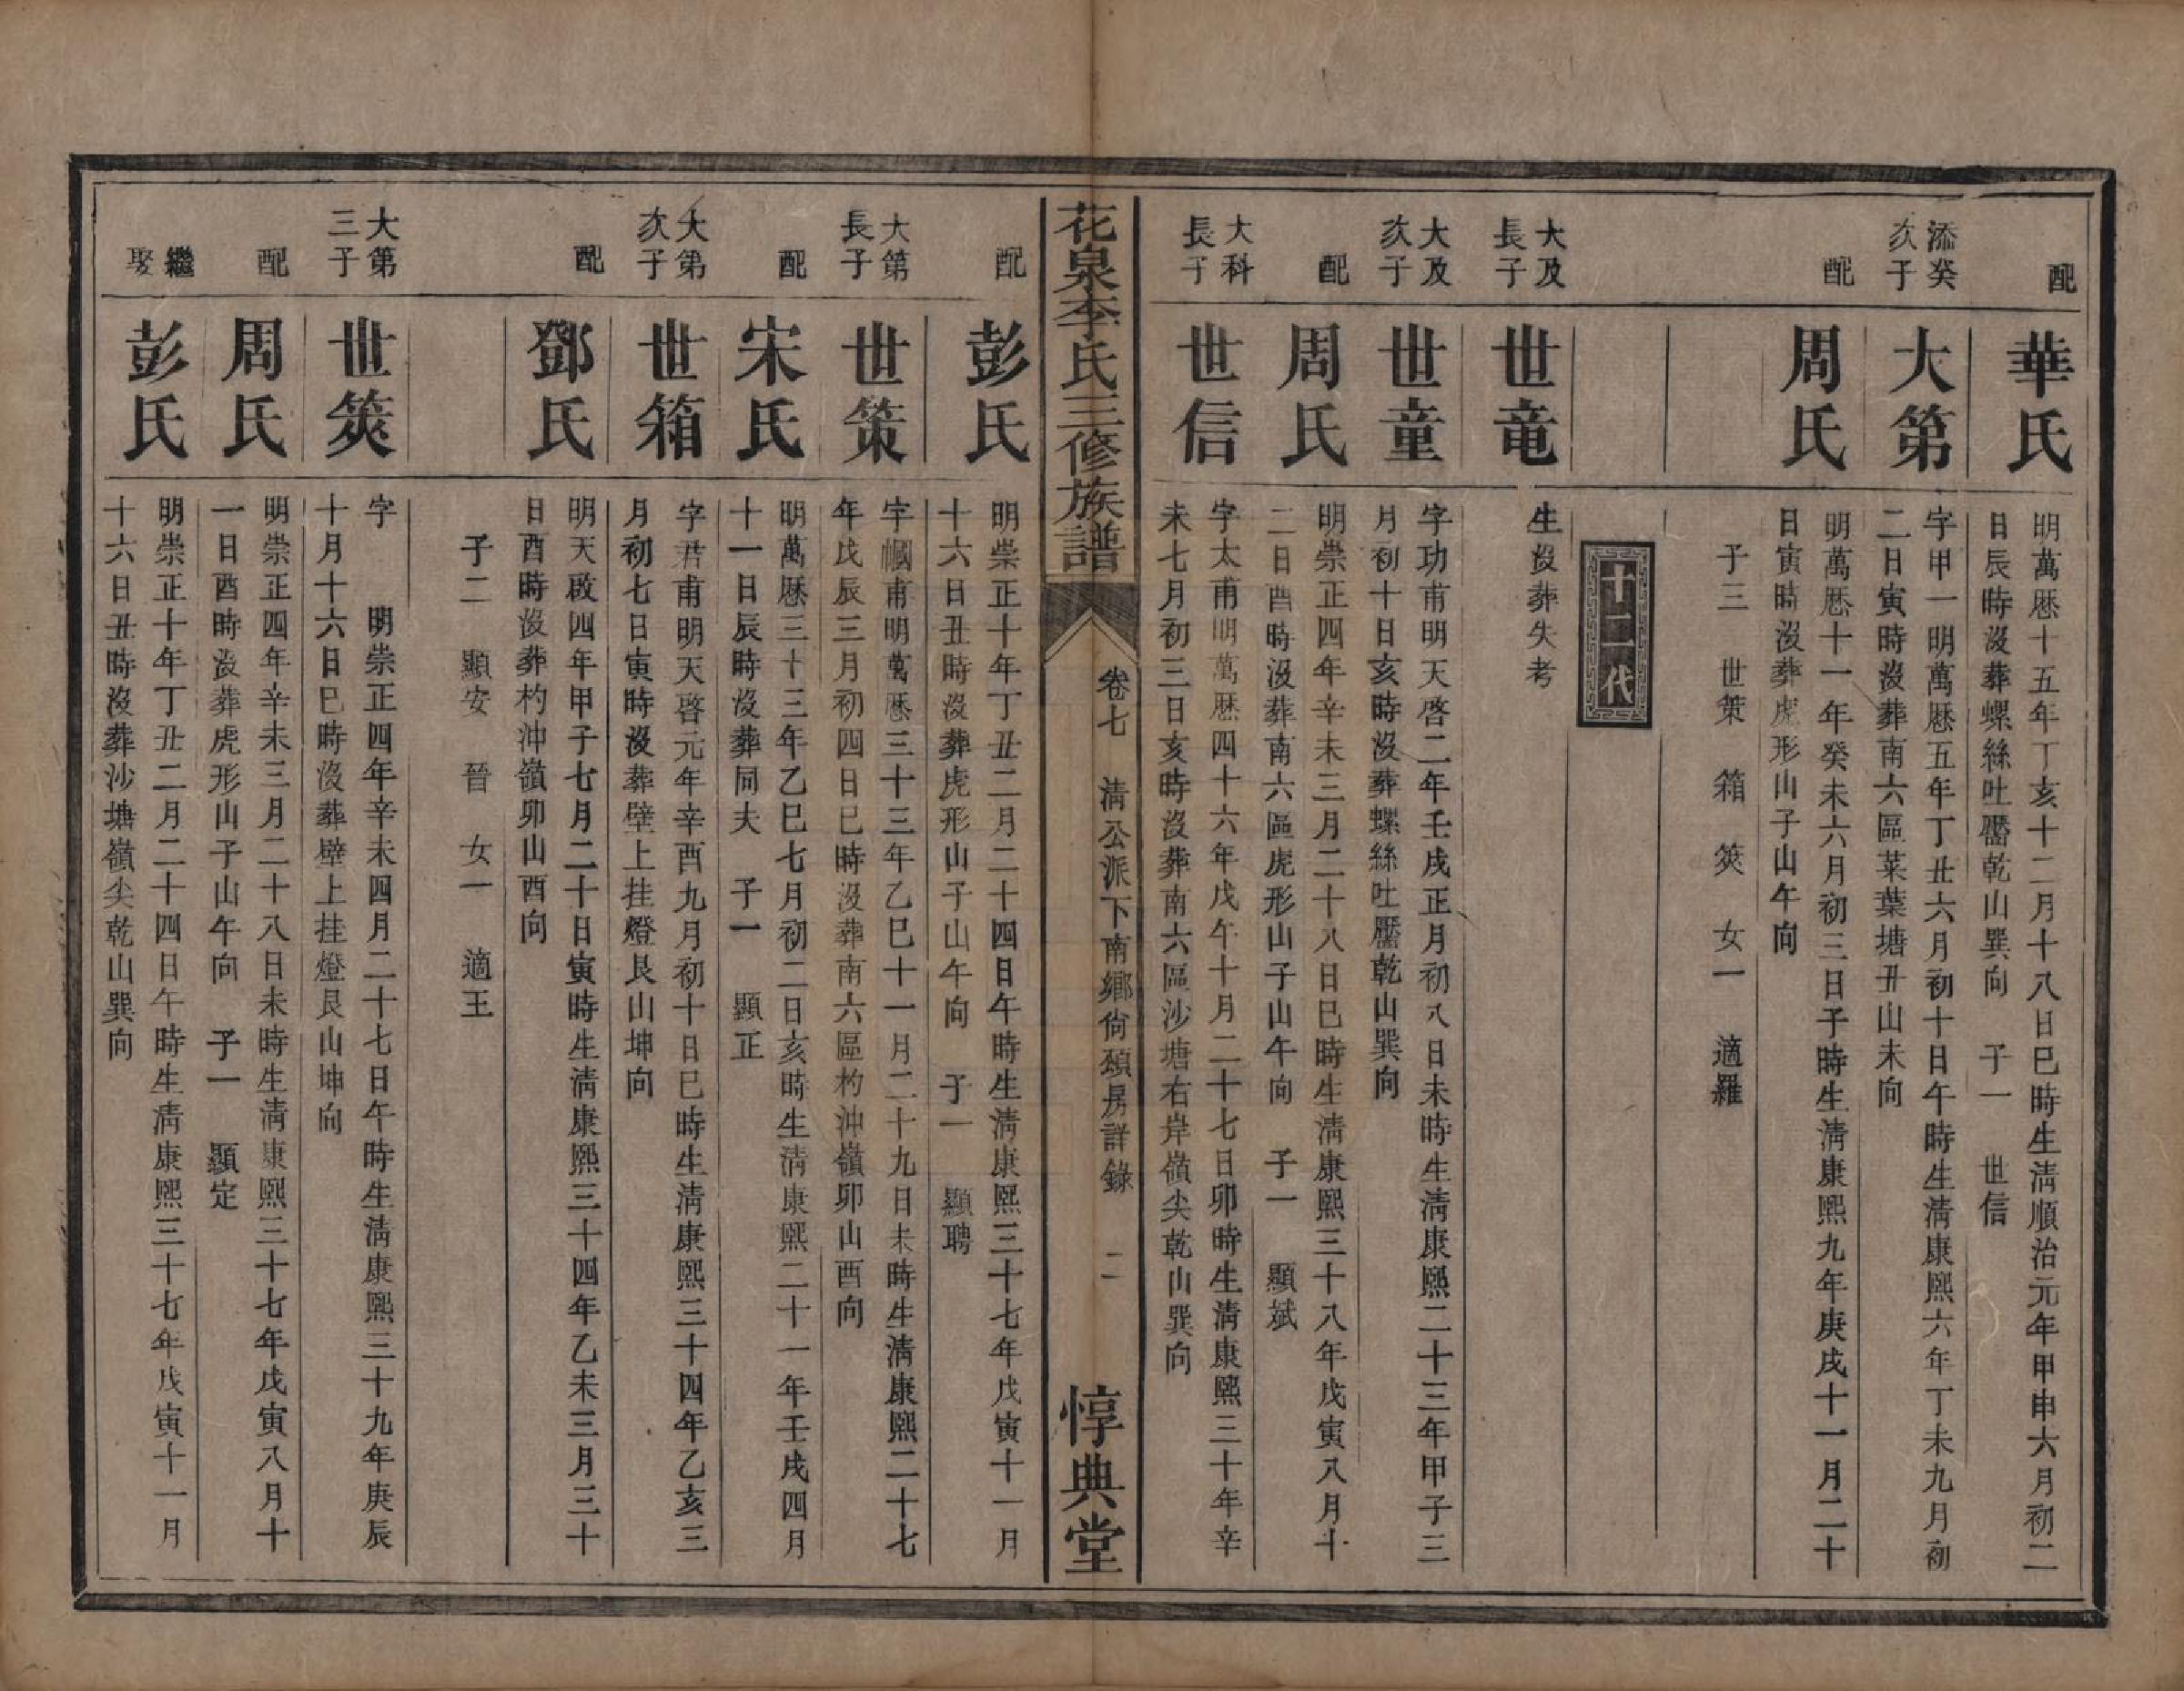 配
華氏
明萬厯十五年丁亥十二月十八日巳時生淸順治元年甲申六月初二
日辰時沒葬螺絲吐靨乾山巽向　子一　世信
添癸
次子
大第
字甲一明萬厯五年丁丑六月初十日午時生淸康熙六年丁未九月初
二日寅時沒葬南六區菜葉塘丑山未向
配
周氏
明萬厯十一年癸未六月初三日子時生淸康熙九年庚戌十一月二十
日寅時沒葬虎形山子山午向
子三　世策　箱　筴　女一　適羅
十二代
大及
長子
世竜
生沒葬失考
大及
次子
世童
字功甫明天啓二年壬戌正月初八日未時生淸康熙二十三年甲子三
月初十日亥時沒葬螺絲吐靨乾山巽向
配
周氏
明崇正四年辛未三月二十八日巳時生淸康熙三十八年戊寅八月十
二日酉時沒葬南六區虎形山子山午向　子一　顯斌
大科
長子
世信
字太甫明萬厯四十六年戊午十月二十七日卯時生淸康熙三十年辛
未七月初三日亥時沒葬南六區沙塘右岸嶺尖乾山巽向
花泉李氏三修族譜
卷七　淸公派下南鄉尙頌房詳錄　二
惇典堂
配
彭氏
明崇正十年丁丑二月二十四日午時生淸康熙三十七年戊寅十一月
十六日丑時沒葬虎形山子山午向　子一　顯聘
大第
長子
世策
字幗甫明萬厯三十三年乙巳十一月二十九日未時生淸康熙二十七
年戊辰三月初四日巳時沒葬南六區杓沖嶺卯山酉向
配
宋氏
明萬厯三十三年乙巳七月初二日亥時生淸康熙二十一年壬戌四月
十一日辰時沒葬同夫　子一　顯正
大第
次子
世箱
字君甫明天啓元年辛酉九月初十日巳時生淸康熙三十四年乙亥三
月初七日寅時沒葬壁上挂燈艮山坤向
配
鄧氏
明天啟四年甲子七月二十日寅時生淸康熙三十四年乙未三月三十
日酉時沒葬杓沖嶺卯山酉向
子二　顯安　晉　女一　適王
大第
三子
世筴
字　明崇正四年辛未四月二十七日午時生淸康熙三十九年庚辰
十月十六日巳時沒葬壁上挂燈艮山坤向
配
周氏
明崇正四年辛未三月二十八日未時生淸康熙三十七年戊寅八月十
一日酉時沒葬虎形山子山午向　子一　顯定
繼
娶
彭氏
明崇正十年丁丑二月二十四日午時生淸康熙三十七年戊寅十一月
十六日丑時沒葬沙塘嶺尖乾山巽向